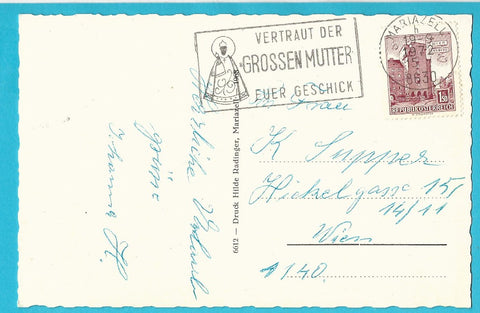 VERTRAUT DER
GROSSEN MUTTER
EUER GESCHICK
MARIAZELL
8630
REPUBLIK ÖSTERREICH
Frau
K Supper
Hickelgasse 15/
14/11
Wien
1140
6612 – Druck Hilde Radinger, Mariazell
Herzliche
Grüsse